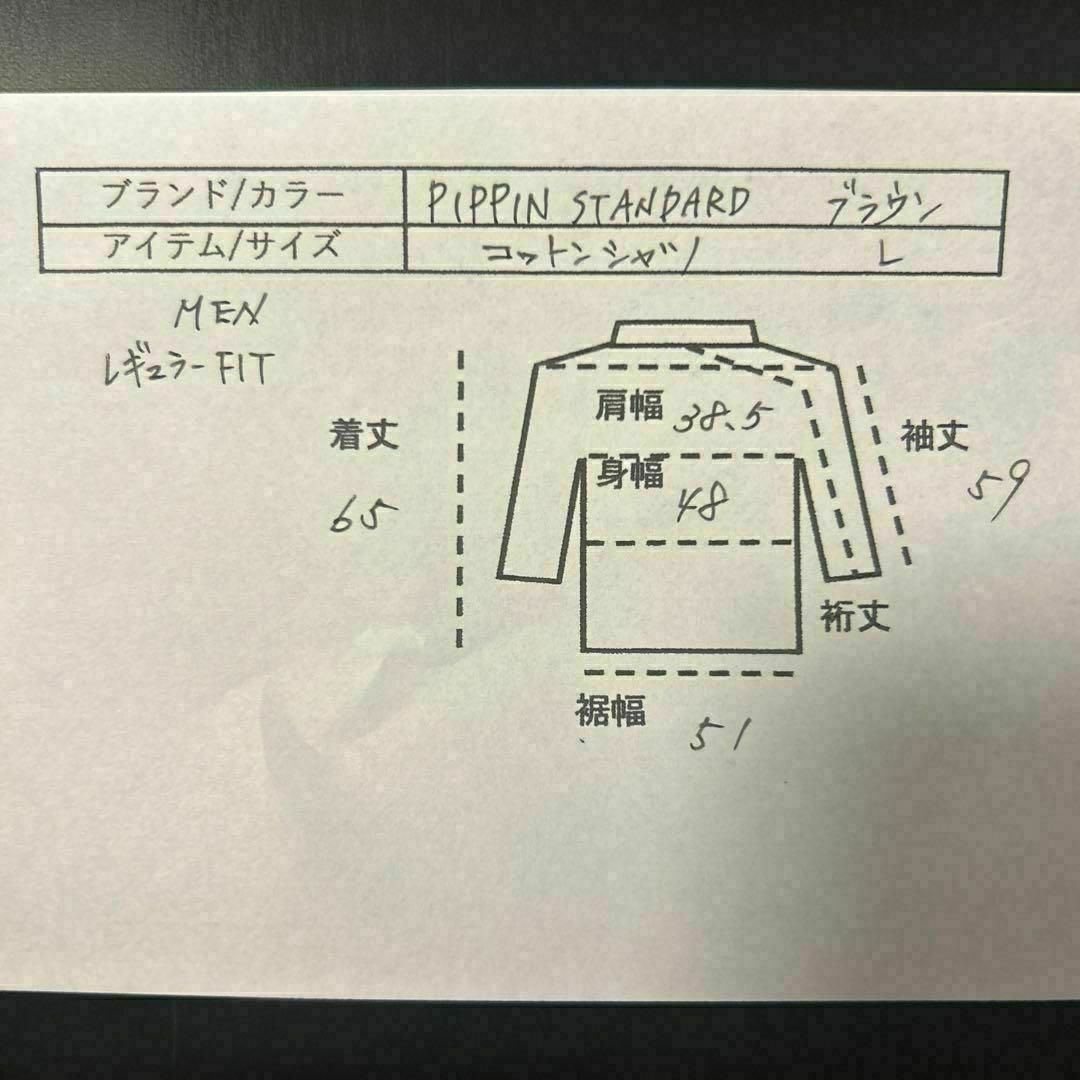 ブランド/カラー PIPPIN STANDARD ブラウン
アイテム/サイズ コットンシャツ L
MEN
レギュラーFIT
肩幅 38.5
着丈
袖丈
身幅
48
65
59
裄丈
裾幅
51